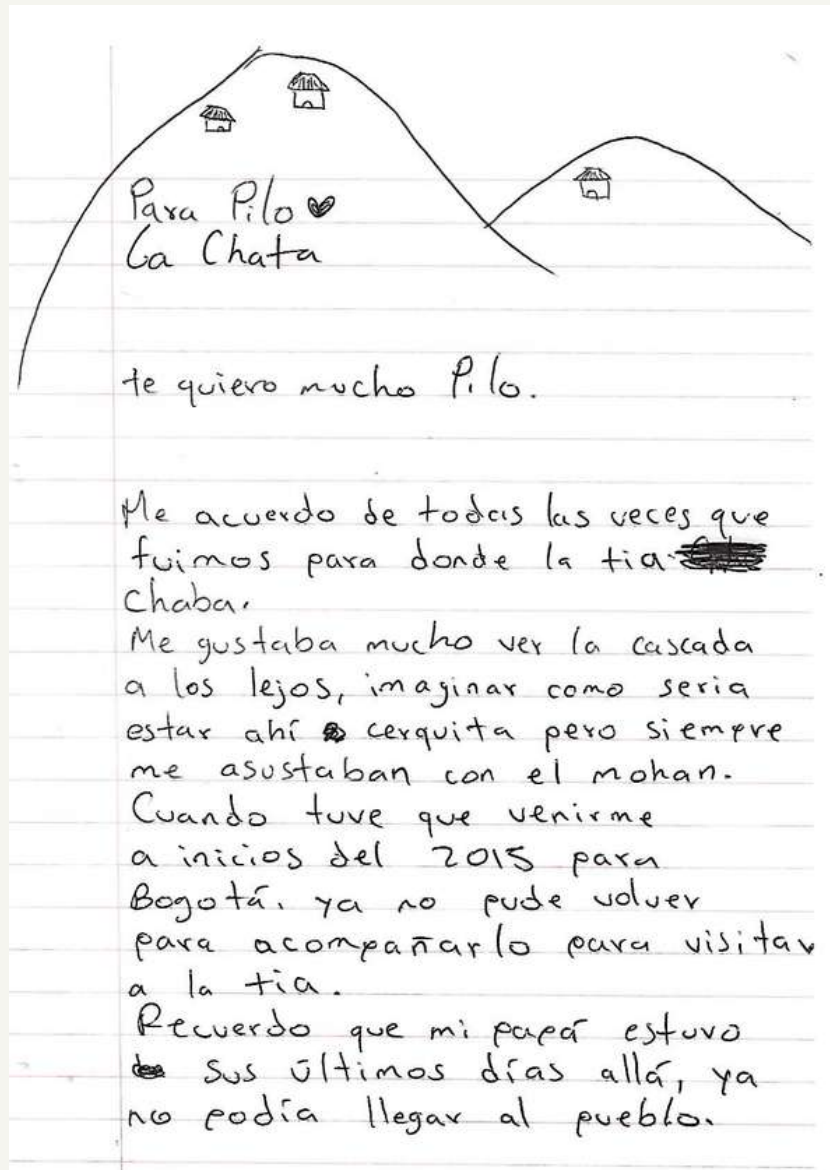 Para Pilo
La Chata
te quiero mucho Pilo.
Me acuerdo de todas las veces que
fuimos para donde la tia
Chaba.
Me gustaba mucho ver la cascada
a los lejos, imaginar como seria
estar ahí cerquita pero siempre
me asustaban con el mohan.
Cuando tuve que venirme
a inicios del 2015 para
Bogotá. ya no pude volver
para acompañarlo para visitar
a la tia.
Recuerdo que mi papá estuvo
sus últimos días allá, ya
no podía llegar al pueblo.